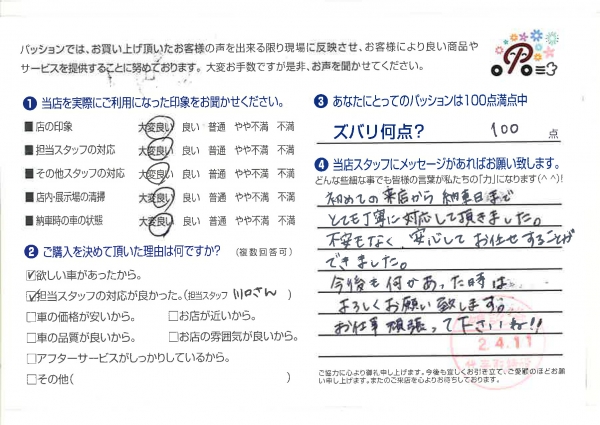 パッションでは、お買い上げ頂いたお客様の声を出来る限り現場に反映させ、お客様により良い商品や
サービスを提供することに努めております。大変お手数ですが是非、お声を聞かせてください。
❶ 当店を実際にご利用になった印象をお聞かせください。
■店の印象 大変良い 良い 普通 やや不満 不満
■担当スタッフの対応 大変良い 良い 普通 やや不満 不満
■その他スタッフの対応 大変良い 良い 普通 やや不満 不満
■店内・展示場の清掃 大変良い 良い 普通 やや不満 不満
■納車時の車の状態 大変良い 良い 普通 やや不満 不満
❷ ご購入を決めて頂いた理由は何ですか? (複数回答可)
☑欲しい車があったから。
☑担当スタッフの対応が良かった。(担当スタッフ 川口さん )
□車の価格が安いから。 □お店が近いから。
□車の品質が良いから。 □お店の雰囲気が良いから。
□アフターサービスがしっかりしているから。
□その他( )
❸ あなたにとってのパッションは100点満点中
ズバリ何点? 100 点
❹ 当店スタッフにメッセージがあればお願い致します。
どんな些細な事でも皆様の言葉が私たちの「力」になります(^ ^)!
初めての来店から納車日まで
とても丁寧に対応して頂きました。
不安もなく、安心してお任せすることが
できました。
今後も何かあった時は
よろしくお願い致します。
お仕事頑張って下さいね!!
2.4.11
ご協力に心より御礼申し上げます。今後も宜しくお引き立て、ご愛顧のほどお願
い申し上げます。またのご来店を心よりお待ちしております。